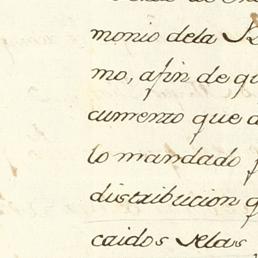 monio dela
mo, afin de
cumento que
lo mandado
distribucion
caidos